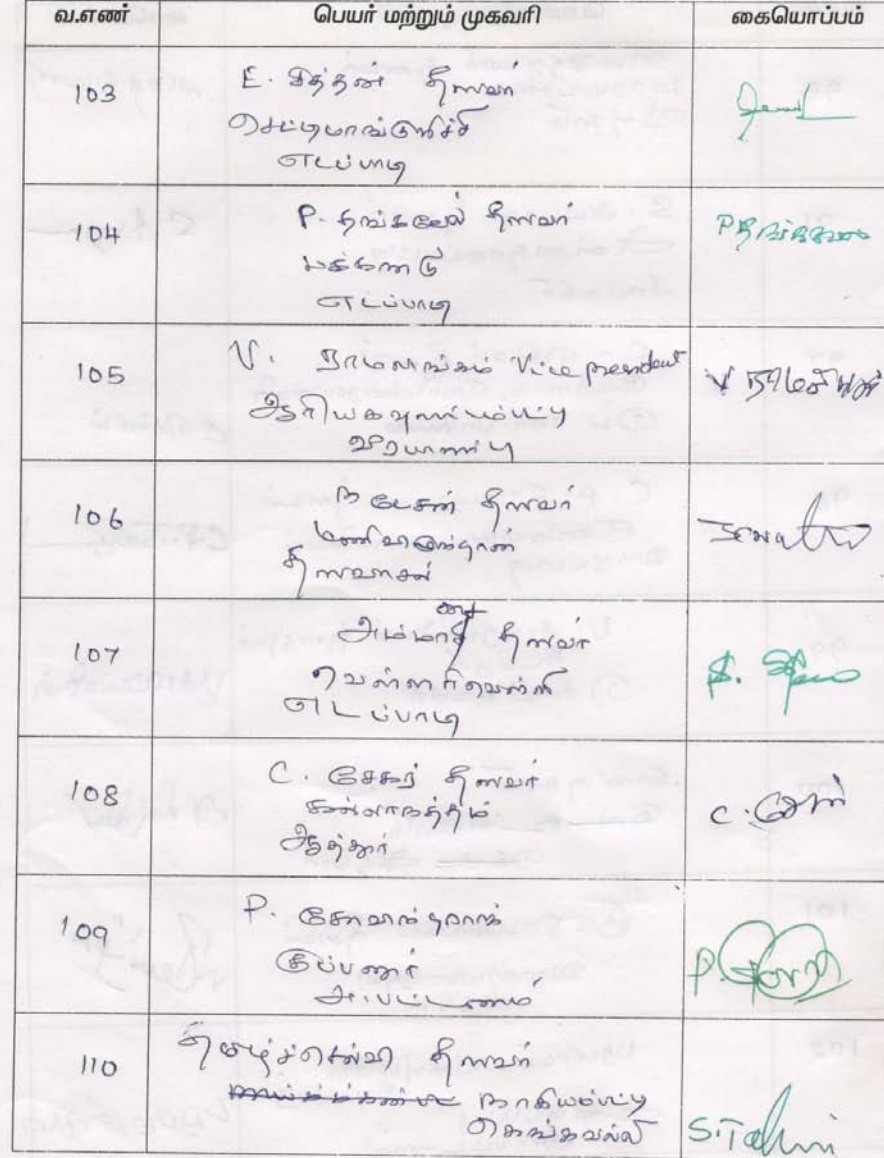 வ.எண் பெயர் மற்றும் முகவரி கையொப்பம்
103 E. சித்தன் தலைவர்
செட்டிமாங்குறிச்சி
எடப்பாடி
104 P. தங்கவேல் தலைவர்
பக்கநாடு
எடப்பாடி
105 V. ராமலிங்கம் Vice president
ஆரியகவுண்டம்பட்டி
106 நடேசன் தலைவர்
மணிவிழுந்தான்
தலைவாசல்
107 அம்மாசை தலைவர்
வெள்ளரிவெள்ளி
எடப்பாடி
108 C. சேகர் தலைவர்
கல்லாநத்தம்
ஆத்தூர்
C. சேகர்
109 P.
குப்பனூர்
அ.பட்டணம்
110 தமிழ்ச்செல்வி தலைவர்
நாகியம்பட்டி
கெங்கவல்லி